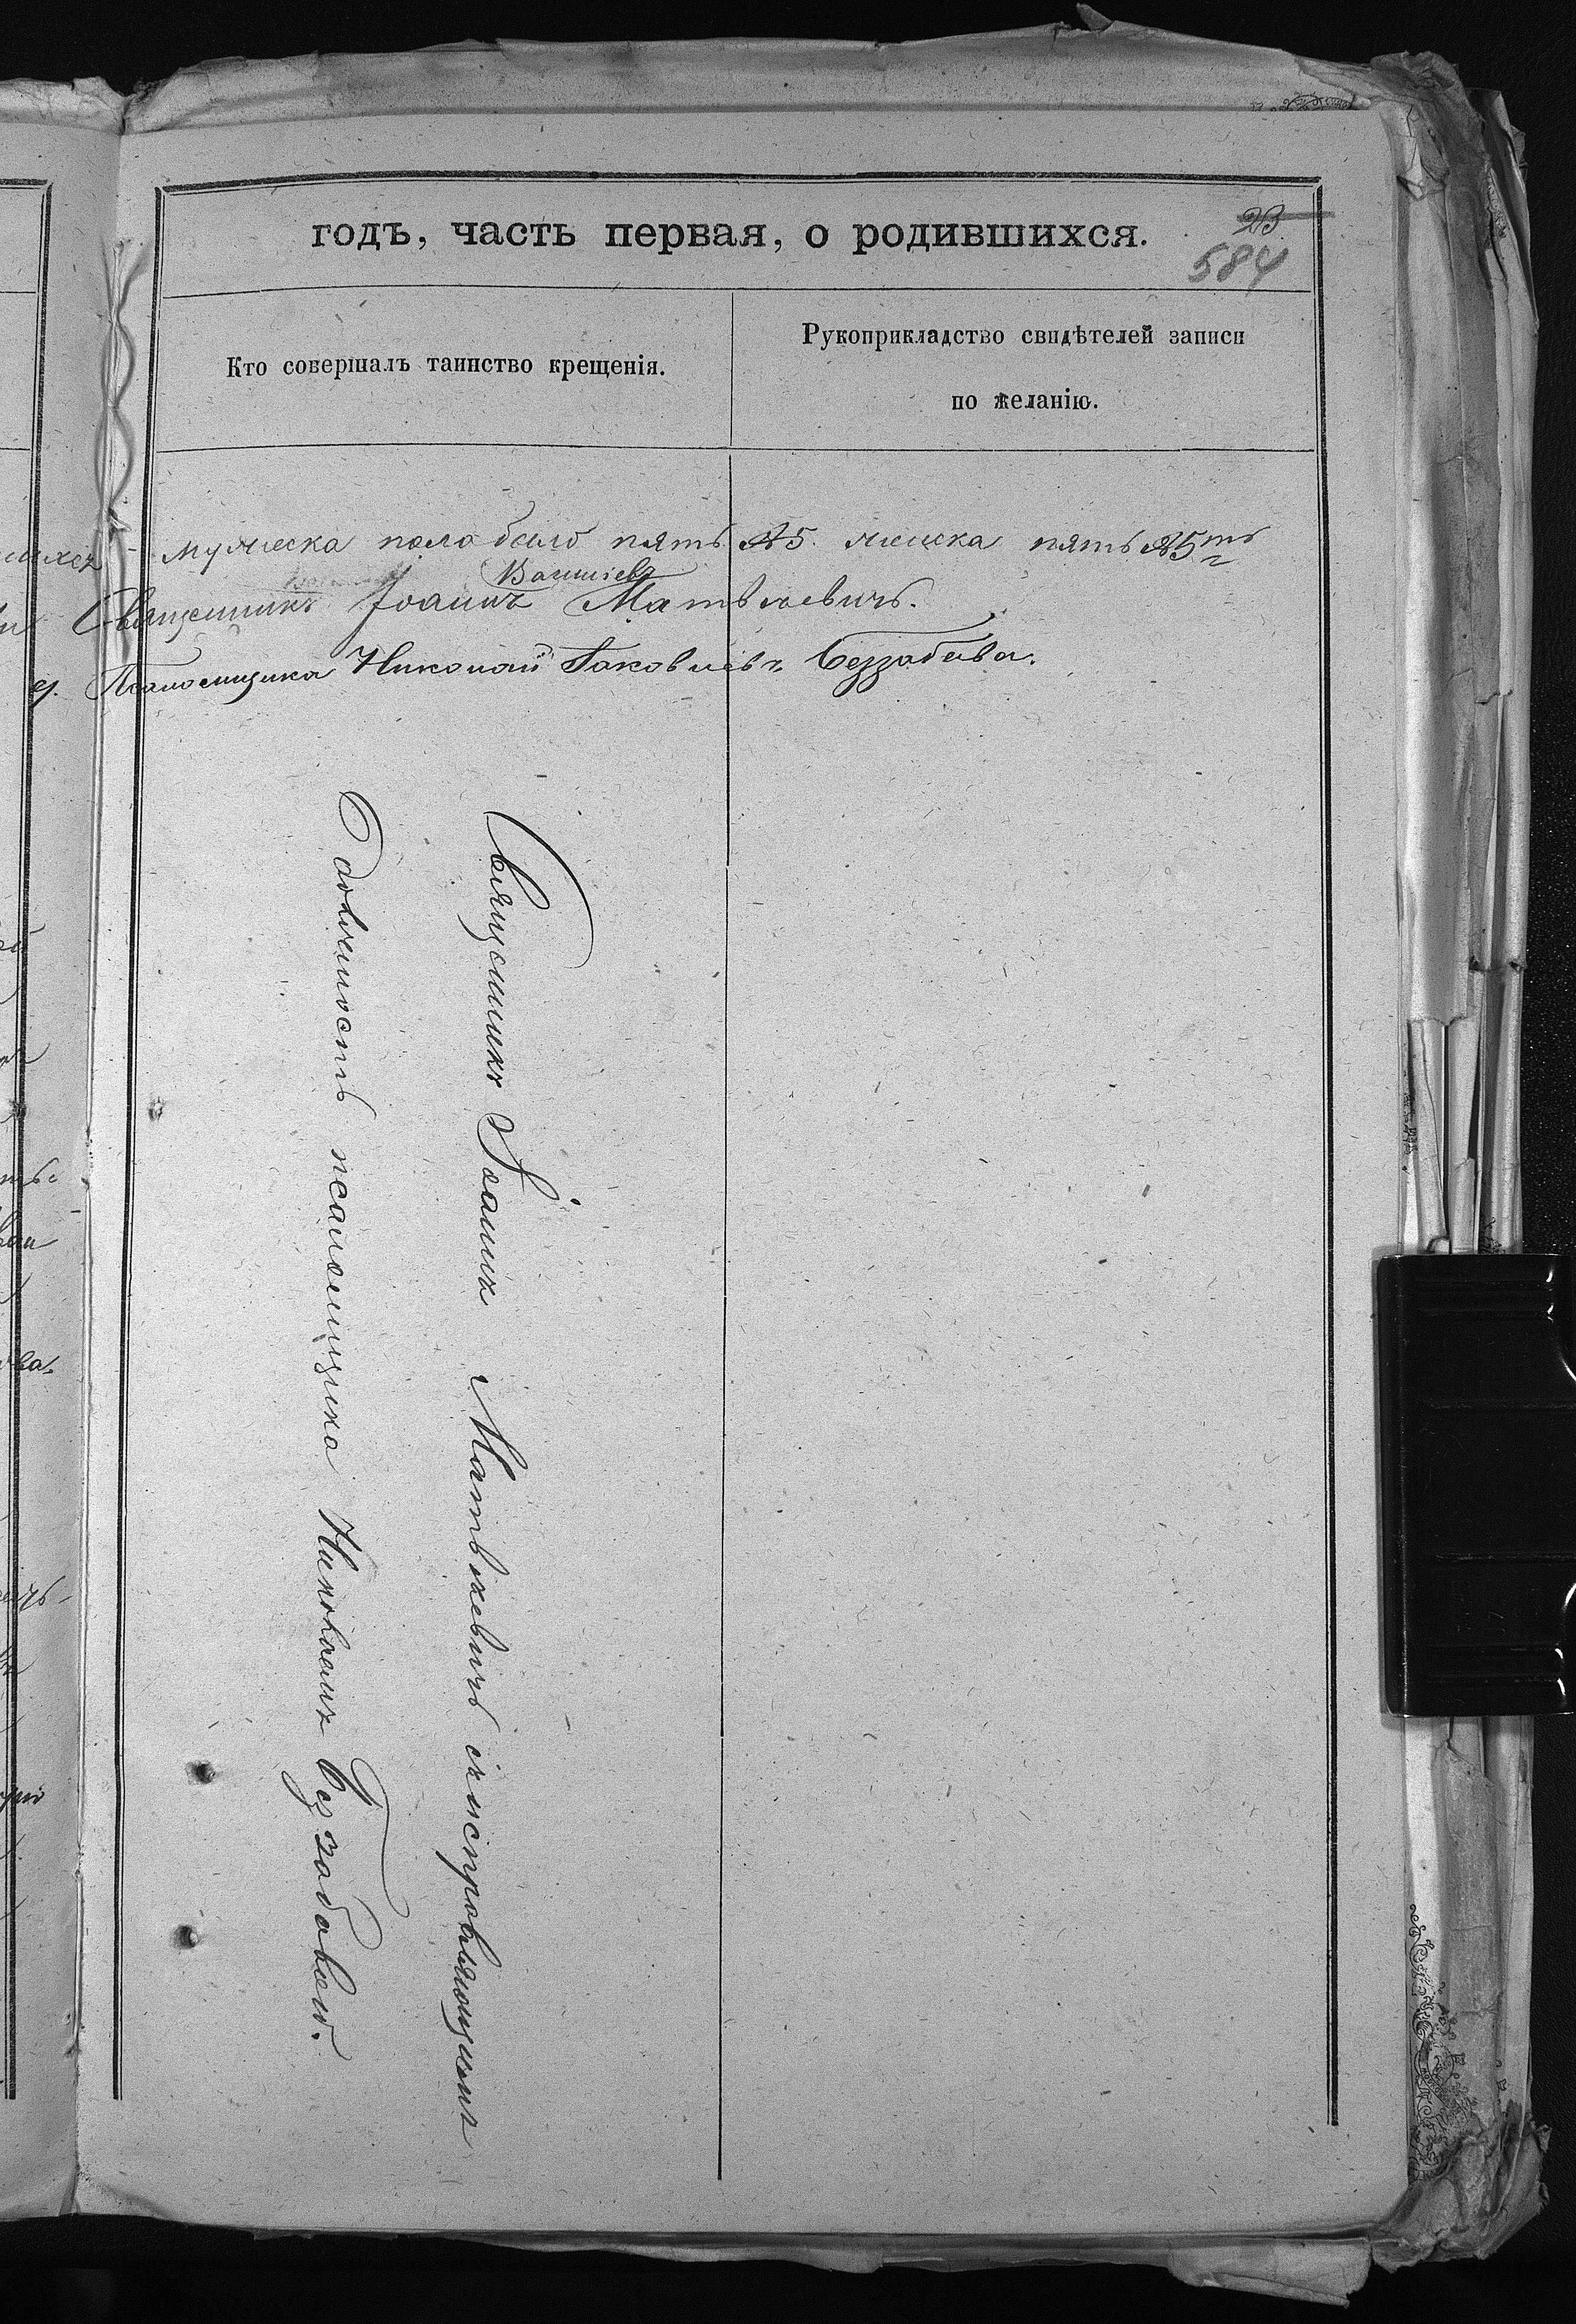 годъ, часть первая, о родившихся.
23
584
Кто совершалъ таинство крещенія.
Рукоприкладство свидѣтелей записи
по желанію.
мужеска пола было пять №5. женска пять №5
Васильевъ
Священникъ Іоаннъ Матвѣевичъ.
Псаломщика Николай Яковлевъ Беззабава.
Священникъ Іоаннъ Матвѣевичъ съ исправляющимъ
Должность псаломщика Николаемъ Беззабавою.